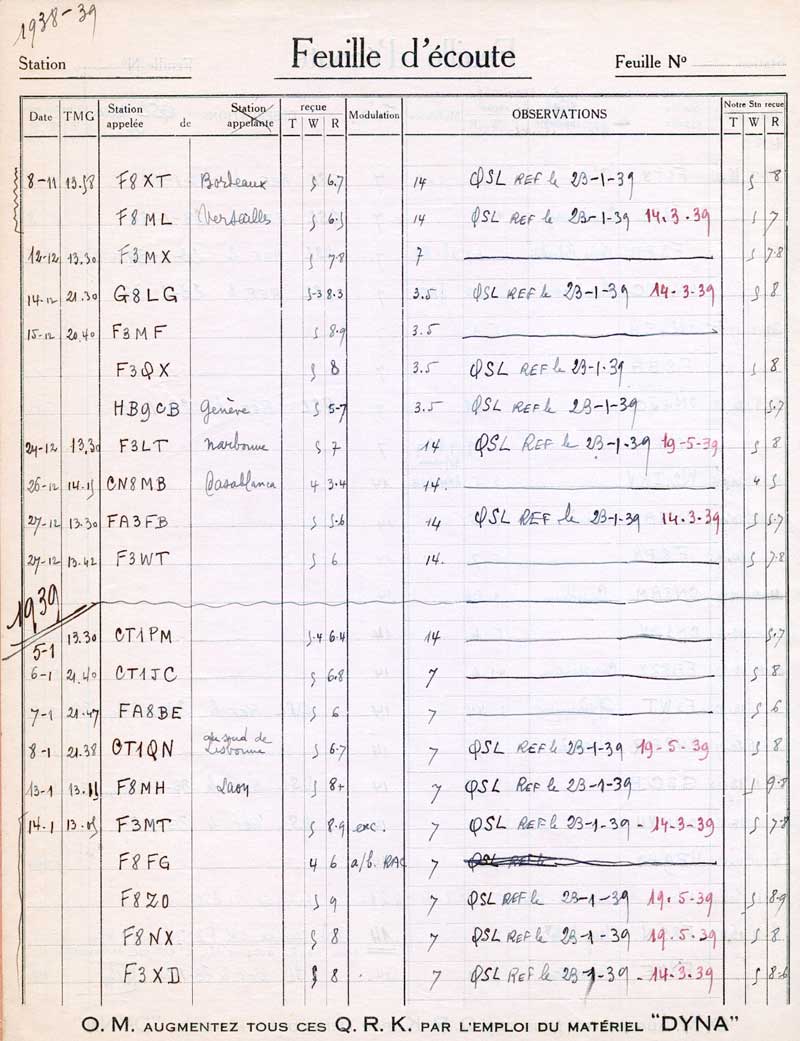 1938-39
Station
Feuille d'écoute
Feuille Nº
Date TMG Station appelée de Station appelante reçue T W R Modulation OBSERVATIONS Notre Stn reçue T W R
8-11 13.58 F8XT Bordeaux 5 6.7 14 QSL REF le 23-1-39 5 8
F8ML Versailles 5 6.5 14 QSL REF le 23-1-39 14.3.39 5 7
12-12 13.30 F3MX 5 7.8 7 5 7.8
14-12 21.30 G8LG 5-3 8.3 3.5 QSL REF le 23-1-39 14-3-39 5 8
15-12 20.40 F3MF 5 8.9 3.5
F3QX 5 8 3.5 QSL REF le 23-1-39 5 8
HB9CB Genève 5 5-7 3.5 QSL REF le 23-1-39 5.7
24-12 13.30 F3LT Narbonne 5 7 14 QSL REF le 23-1-39 19-5-39 5 8
26-12 14.15 CN8MB Casablanca 4 3.4 14. 4 5
27-12 13.30 FA3FB 5 5-6 14 QSL REF le 23-1-39 14.3.39 5 5.7
27-12 13.42 F3WT 5 6 14. 5 7.8
1939
5-1 13.30 CT1PM 5.4 6.4 14 5.7
6-1 21.40 CT1JC 5 6.8 7 5 8
7-1 21.47 FA8BE 5 6 7 5 6
8-1 21.38 CT1QN au sud de Lisbonne 5 6.7 7 QSL REF le 23-1-39 19-5-39 5 8
13-1 13.15 F8MH Laon 5 8+ 7 QSL REF le 23-1-39 9-8
14.1 13.05 F3MT 5 8.9 exc. 7 QSL REF le 23-1-39 - 14-3-39 5 7.8
F8FG 4 6 a/b. RAC 7 QSL REF le
F8ZO 5 9 7 QSL REF le 23-1-39 19.5-39 5 8-9
F8NX 5 8 7 QSL REF le 23-1-39 19.5.39 5 8
F3XD 5 8 7 QSL REF le 23-1-39 -14-3.39 5 8-6
O. M. AUGMENTEZ TOUS CES Q. R. K. PAR L'EMPLOI DU MATÉRIEL "DYNA"